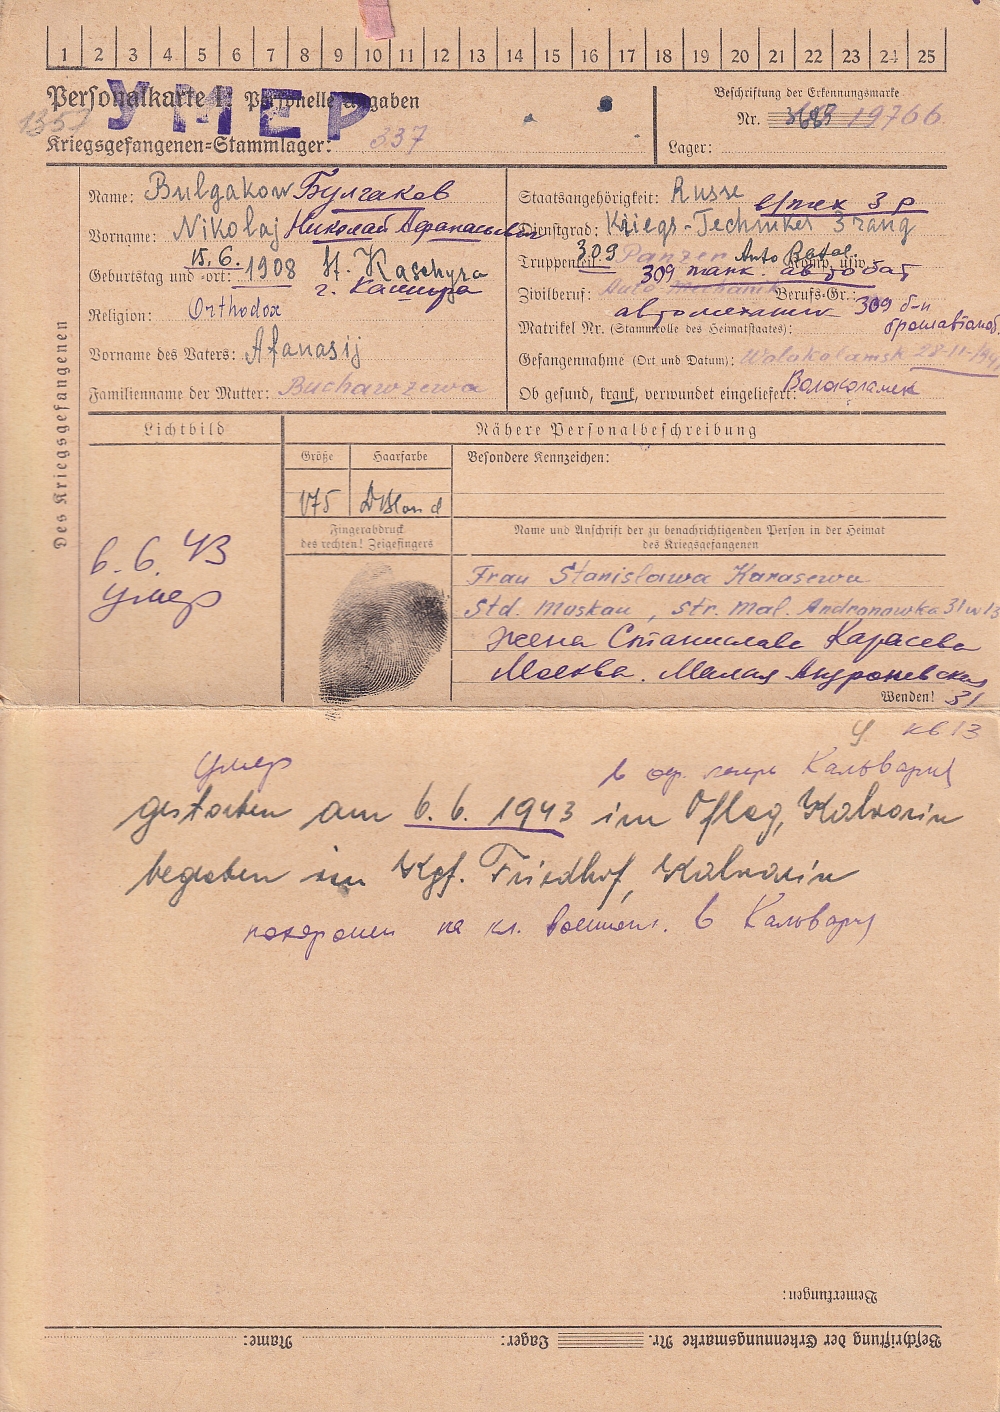 1 2 3 4 5 6 7 8 9 10 11 12 13 14 15 16 17 18 19 20 21 22 23 24 25
Personalkarte I: Personelle Angaben
УМЕР
Beschriftung der Erkennungsmarke
Nr. 19766
Kriegsgefangenen=Stammlager: 337
Lager:
Des Kriegsgefangenen
Name: Bulgakow Булгаков
Vorname: Nikolaj Николай Афанасьевич
Geburtstag und -ort: 15.6. 1908 St. Kaschyra
г. Кашира
Religion: Orthodox
Vorname des Vaters: Afanasij
Familienname der Mutter: Bucharzewa
Staatsangehörigkeit: Russe
в/тех 3 р
Dienstgrad: Kriegs-Techniker 3 rang
Truppenteil: 309 Panzer Auto Batal Komp. usw.
309 танк. автобат
Zivilberuf: Auto Mechanik Berufs-Gr.:
автомеханик 309 б-н
Matrikel Nr. (Stammrolle des Heimatstaates):
Gefangennahme (Ort und Datum): Wolakolamsk 28-11-1941
Волоколамск
Ob gesund, krank, verwundet eingeliefert:
Lichtbild
6.6.43
умер
Nähere Personalbeschreibung
Größe Haarfarbe Besondere Kennzeichen:
175 D Blond
Fingerabdruck
des rechten! Zeigefingers
Name und Anschrift der zu benachrichtigenden Person in der Heimat
des Kriegsgefangenen
Frau Stanislawa Karasewa
Std. Moskau, Str. Mal. Andronowka 31 w 13
жена Станислава Карасева
Москва. Малая Андроневская
31
Wenden!
кв 13
умер в оф. лагере Кальвария
gestorben am 6.6.1943 im Oflag, Kalvarin
begraben im Kgf. Friedhof, Kalvarin
похоронен на кл. военноп. в Кальвария
Bemerkungen:
Name: Lager: Beschriftung der Erkennungsmarke Nr.